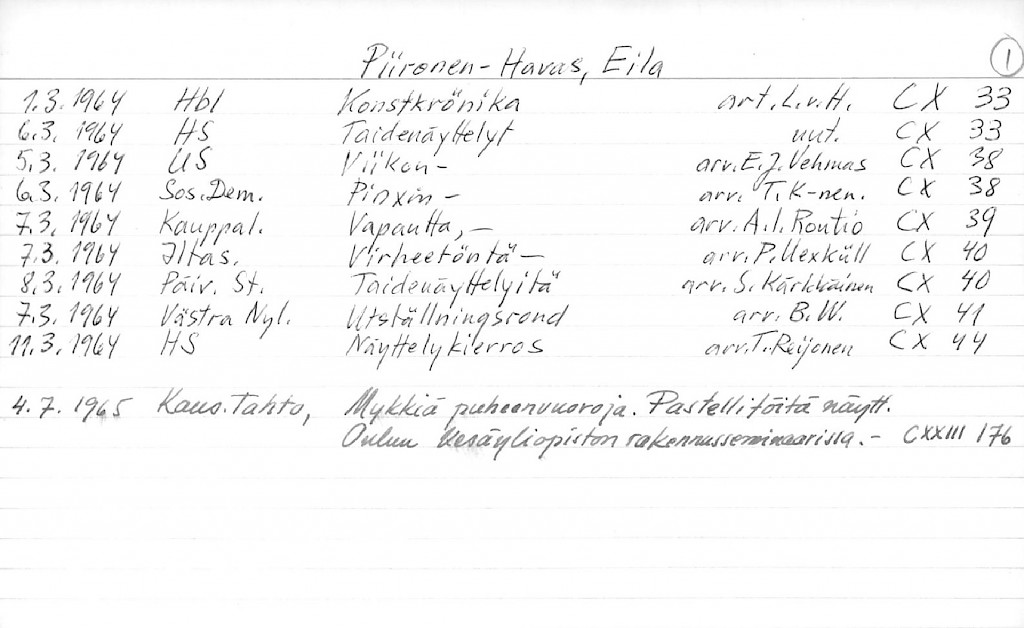 Piironen-Havas, Eila 1
1.3.1964 Hbl Konstkrönika art. L.v.H. CX 33
6.3.1964 HS Taidenäyttelyt uut. CX 33
5.3.1964 US Viikon- arv. E.J. Vehmas CX 38
6.3.1964 Sos.Dem. Pinxin- arv. T.K-nen. CX 38
7.3.1964 Kauppal. Vapautta,- arv. A.I. Routio CX 39
7.3.1964 Iltas. Virheetöntä- arv. P.Uexküll CX 40
8.3.1964 Päiv. St. Taidenäyttelyitä arv. S. Kärkkäinen CX 40
7.3.1964 Västra Nyl. Utställningsrond arv. B.W. CX 41
11.3.1964 HS Näyttelykierros arv. T. Reijonen CX 44
4.7.1965 Kans.Tahto, Mykkiä puheenvuoroja. Pastellitöitä näytt.
Oulun Kesäyliopiston rakennusseminaarissa.- CXXIII 176